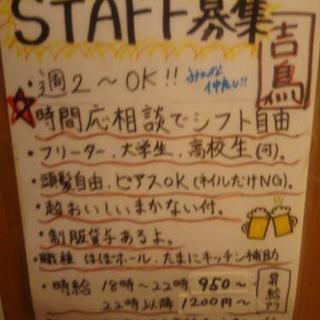 STAFF募集
吉鳥
・週2〜OK!! みんな仲良し!!
☆時間応相談でシフト自由
・フリーター、大学生、高校生(可)。
・頭髪自由、ピアスOK(ネイルだけNG)。
・超おいしいまかない付。
・制服貸与あるよ。
・職種 ほぼホール、たまにキッチン補助
・時給 18時〜22時 950〜
22時以降 1200円〜
昇給アリ